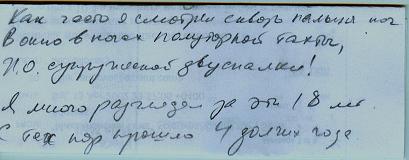 Как часто я смотрел сквозь пальцы ног
В окно в ногах полуторной тахты,
И.О. супружеской двуспалки!
Я много разглядел за эти 18 лет.
С тех пор прошло 4 долгих года.